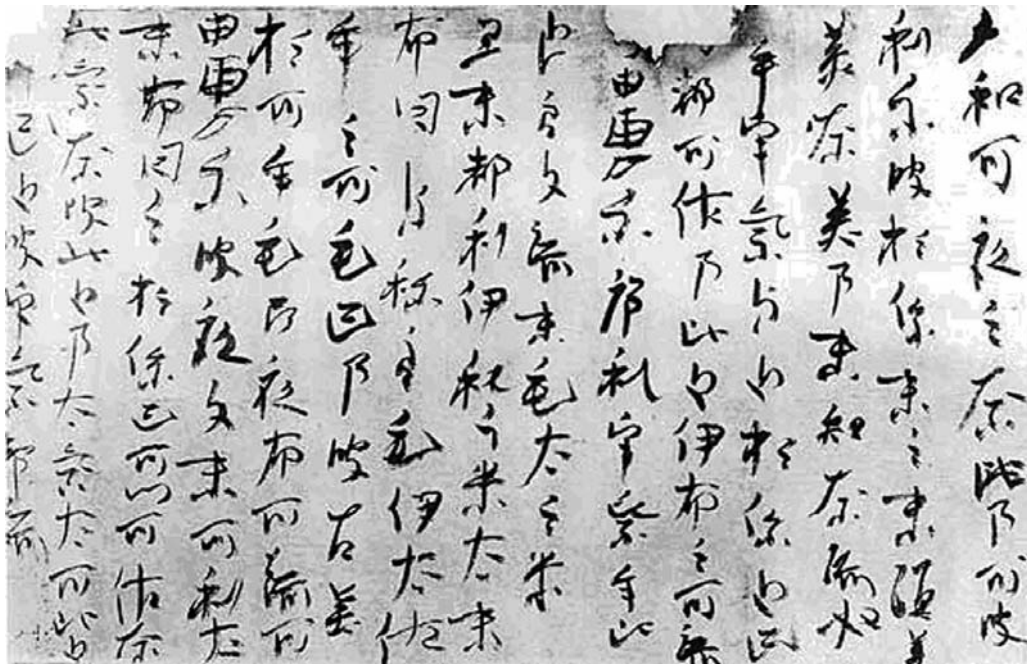 和可夜之奈比乃可波
利尓波於保末之末須
美奈美乃末知奈流奴
乎宇気与止於保止己
都可佐乃比止伊布之可流
由恵尓序礼宇気牟比
止良久流末毛太之米
弖末都利伊礼之米太末
布日与祢良毛伊太佐
牟之可毛己乃波古美
於可牟毛阿夜布可流可
由恵尓波夜久末可利太
末布日之於保己可川可佐奈
比気奈波比止乃太気太可比止
己止波宇気都流